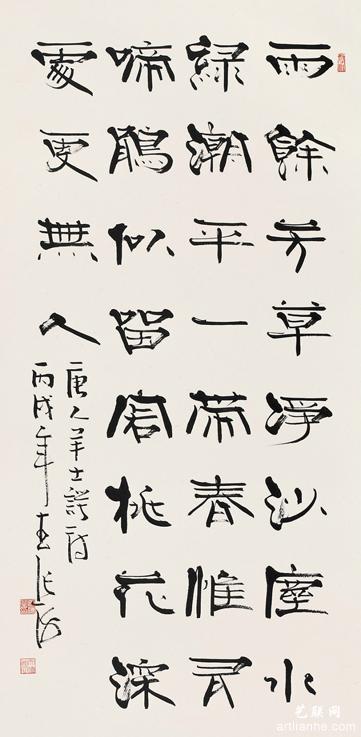 雨餘芳草淨沙塵水
綠潮平一帶春惟有
啼鵑似留客桃花深
處更無人
唐人羊士諤詩
丙戌年張海
艺联网
artlianhe.com